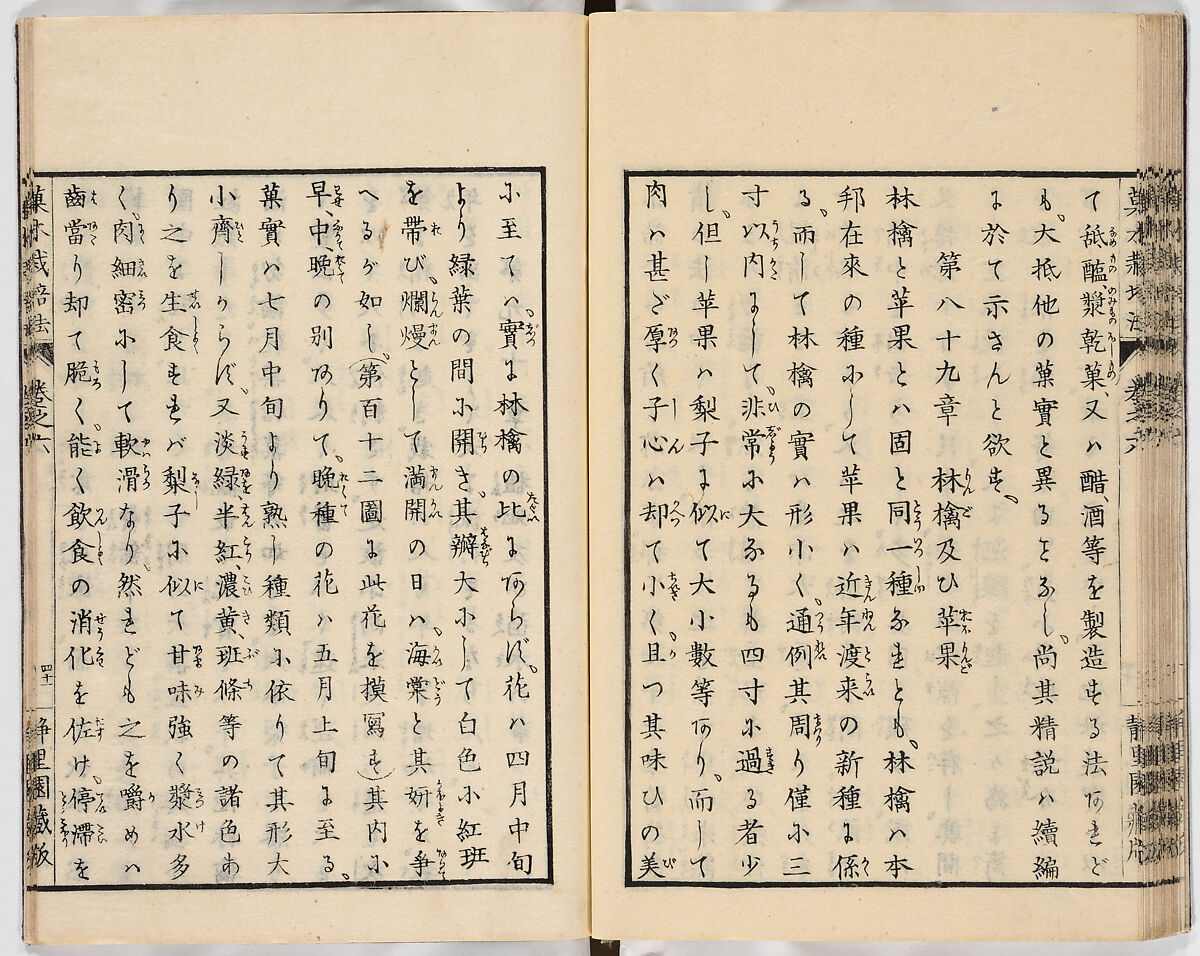 て舐醞、漿、乾菓、又ハ醋、酒等を製造する法あれど
も、大抵他の菓實と異るとなし、尚其精説ハ續編
に於て示さんと欲す、
第八十九章 林檎及ひ苹果
林檎と苹果とハ固と同一種なれとも、林檎ハ本
邦在來の種にして苹果ハ近年渡来の新種に係
る、而して林檎の實ハ形小く、通例其周り僅に三
寸以内にして、非常に大なるも四寸に過る者少
し、但し苹果ハ梨子に似て大小數等あり、而して
肉ハ甚ざ厚く子心ハ却て小く、且つ其味ひの美
に至てハ實に林檎の比にあらず、花ハ四月中旬
より緑葉の間に開き、其瓣大にして白色に紅班
を帶び、爛熳として満開の日ハ、海棠と其妍を爭
へるが如し、(第百十二圖に此花を摸寫す)其内に
早、中、晩の别ありて、晩種の花ハ五月上旬に至る、
菓實ハ七月中旬より熟し種類に依りて其形大
小齊しからず、又淡緑、半紅、濃黄、班條等の諸色あ
り之を生食すれバ梨子に似て甘味強く漿水多
く、肉細密にして軟滑なり、然れども之を嚼めハ
齒當り却て脆く、能く飲食の消化を佐け、停滞を
菓木栽培法 卷之六 四十一 静里園蔵版